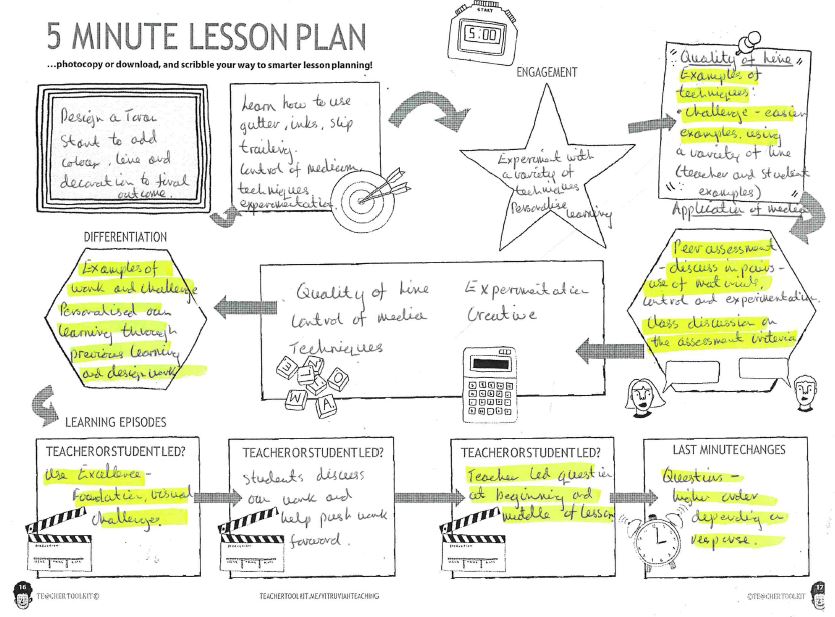 5 MINUTE LESSON PLAN
...photocopy or download, and scribble your way to smarter lesson planning!
START
5:00
Design a
Start to add
colour, line and
decoration to final
outcome.
Learn how to use
gutter, inks, slip
trailing.
Control of medium,
techniques
experimentation
ENGAGEMENT
Experiment with
a variety of
techniques
Personalise learning
Quality of line
Examples of
techniques:
• challenge - easier
examples, using
a variety of line
(teacher and student
examples)
Application of media
DIFFERENTIATION
Examples of
work and challenge
Personalised own
learning through
previous learning
and design work
Quality of line
Control of media
Techniques
Experimentation
Creative
Peer assessment
- discuss in pairs -
use of materials,
control and experimentation.
Class discussion on
the assessment criteria
LEARNING EPISODES
TEACHER OR STUDENT LED?
Use Excellence -
Foundation, visual
challenges.
TEACHER OR STUDENT LED?
Students discuss
own work and
help push work
forward.
TEACHER OR STUDENT LED?
Teacher led question
at beginning and
middle of lesson
LAST MINUTE CHANGES
Questions -
higher order
depending on
response.
16
TE@CHERTOOLKIT©
TEACHERTOOLKIT.ME/VITRUVIANTEACHING
©TE@CHERTOOLKIT
17